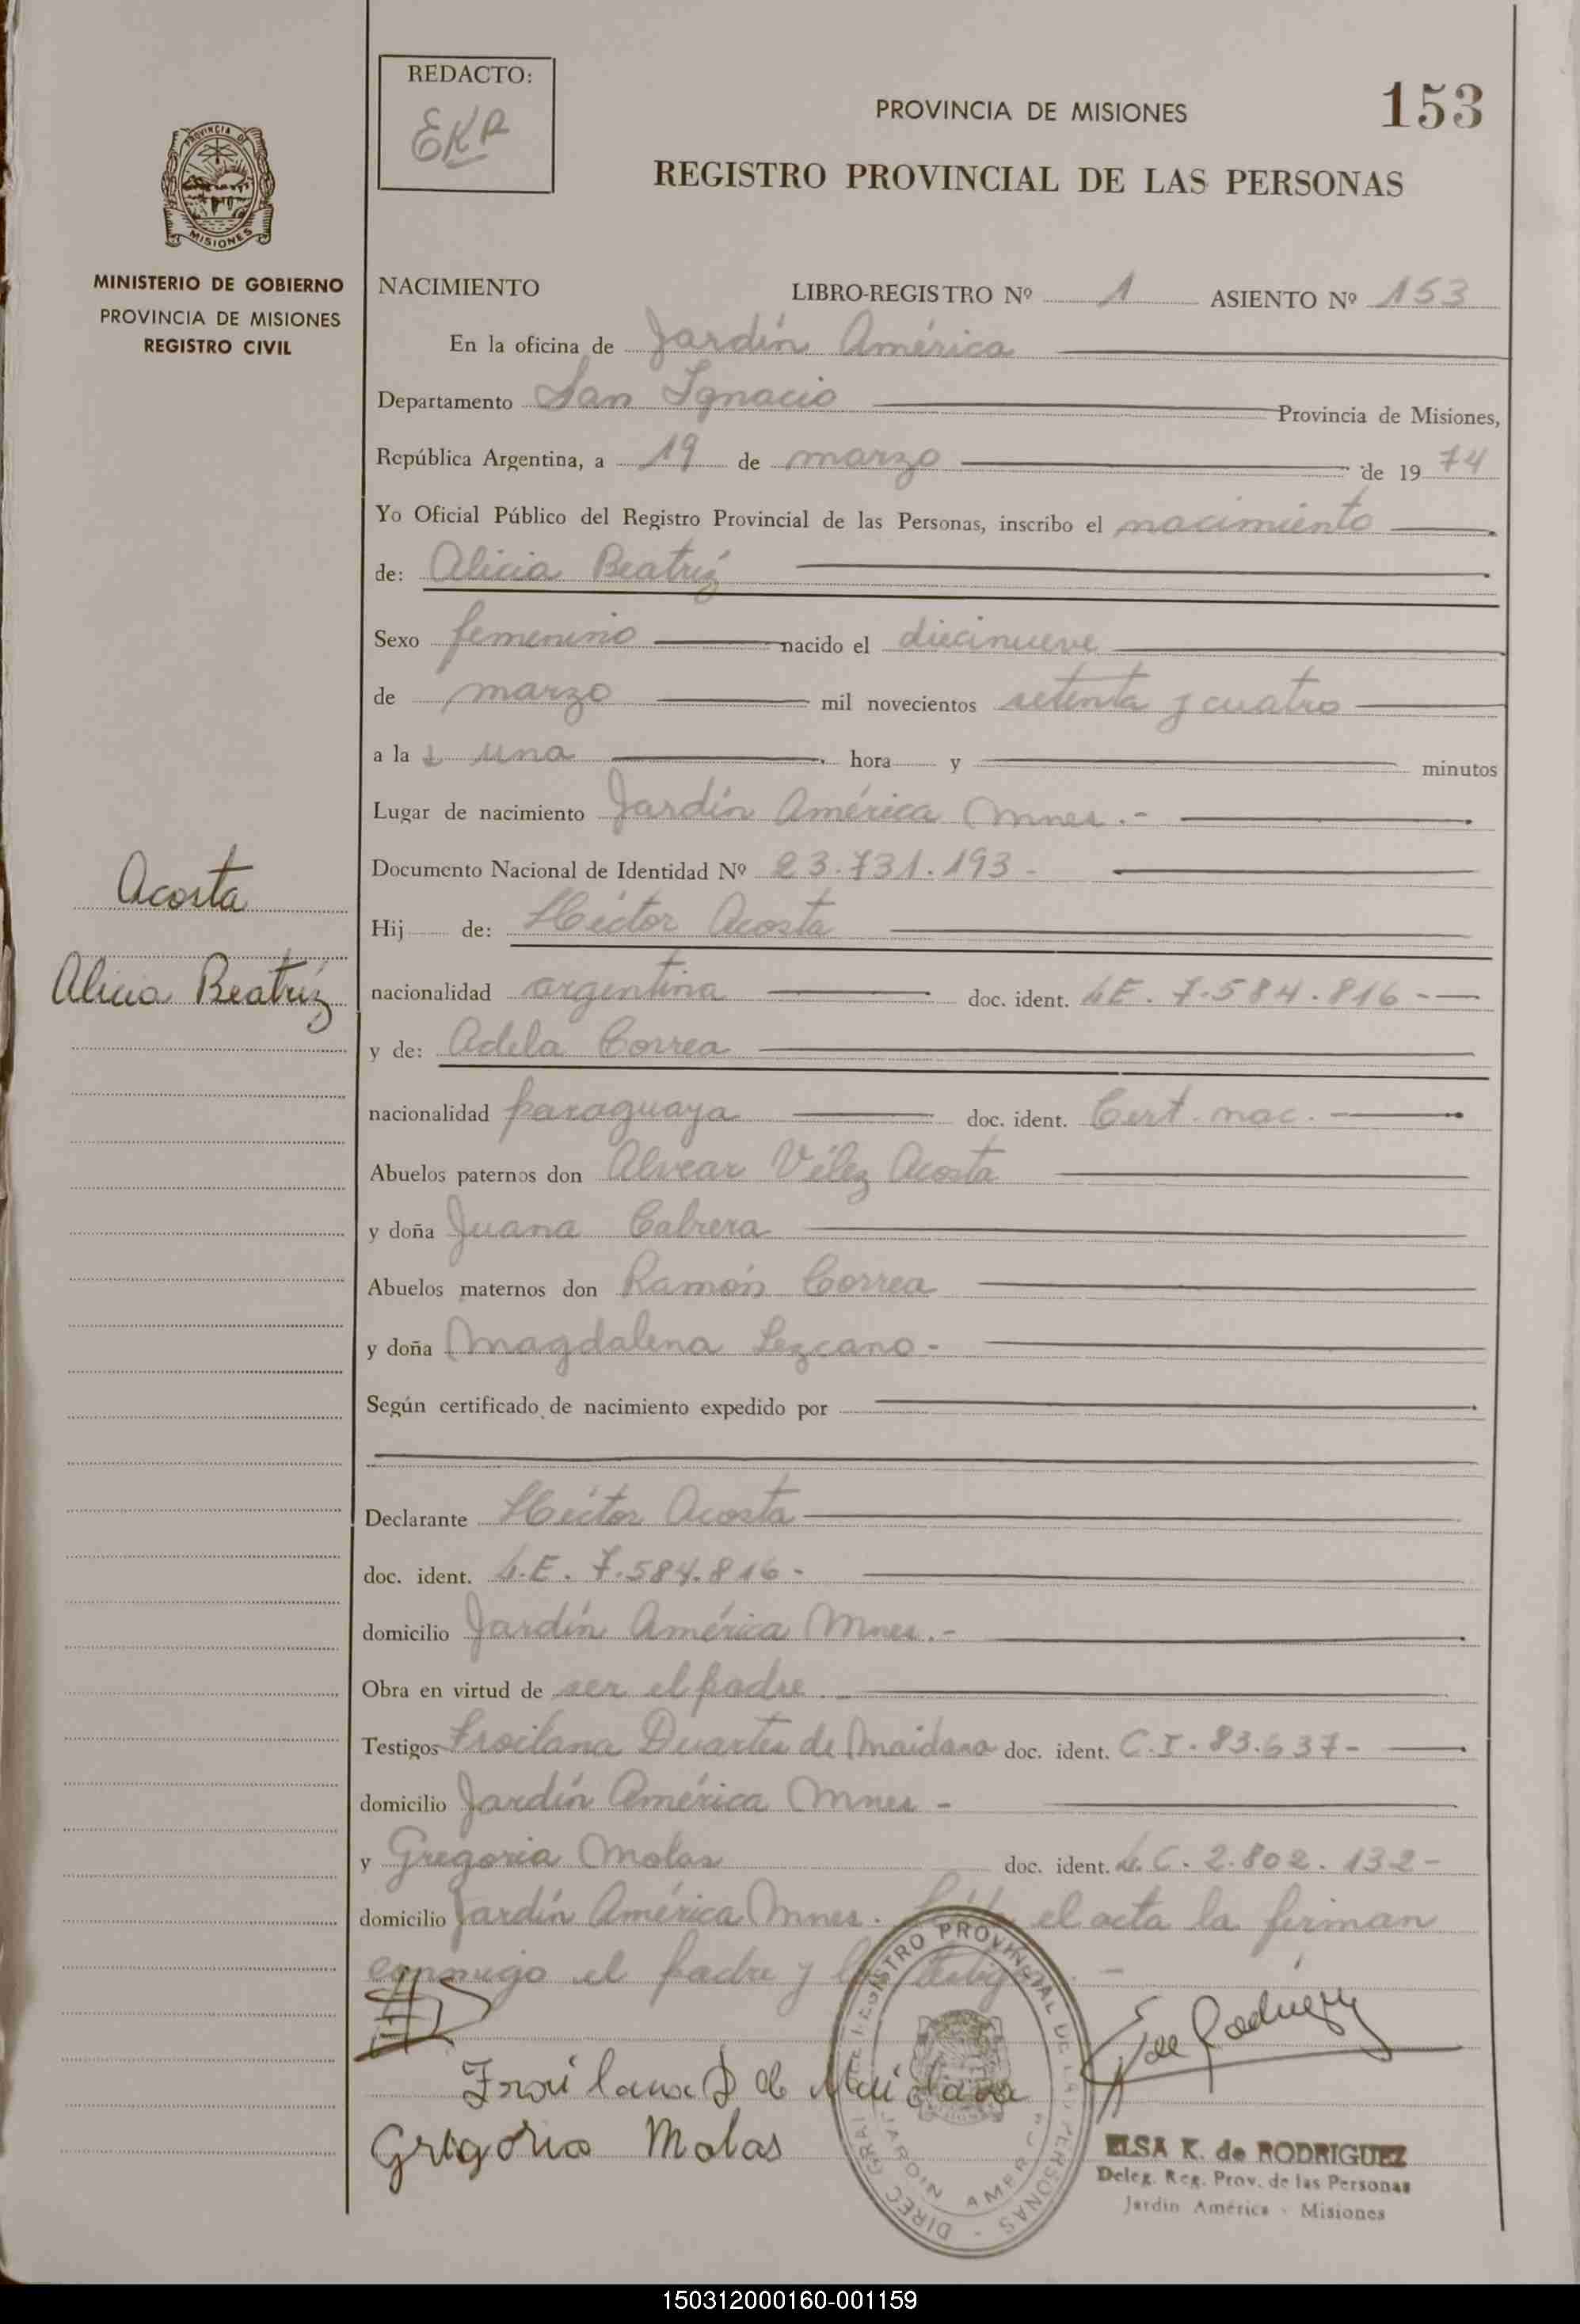 REDACTO:
EKR
PROVINCIA DE MISIONES
153
REGISTRO PROVINCIAL DE LAS PERSONAS
PROVINCIA DE
MISIONES
MINISTERIO DE GOBIERNO
PROVINCIA DE MISIONES
REGISTRO CIVIL
NACIMIENTO LIBRO-REGISTRO Nº 1 ASIENTO Nº 153
En la oficina de Jardín América
Departamento San Ignacio Provincia de Misiones,
República Argentina, a 19 de marzo de 19 74
Yo Oficial Público del Registro Provincial de las Personas, inscribo el nacimiento
de: Alicia Beatríz
Sexo femenino nacido el diecinueve
de marzo mil novecientos setenta y cuatro
a la una hora y minutos
Lugar de nacimiento Jardín América Mnes.-
Documento Nacional de Identidad Nº 23.731.193-
Acosta
Alicia Beatríz
Hij de: Héctor Acosta
nacionalidad argentina doc. ident. L.E. 7.584.816-
y de: Adela Correa
nacionalidad paraguaya doc. ident. Cert. nac.
Abuelos paternos don Alvear Vélez Acosta
y doña Juana Cabrera
Abuelos maternos don Ramón Correa
y doña Magdalena Lezcano-
Según certificado de nacimiento expedido por
Declarante Héctor Acosta
doc. ident. L.E. 7.584.816-
domicilio Jardín América Mnes.-
Obra en virtud de ser el padre
Testigos Froilana Duarte de Maidana doc. ident. C.I. 83.637-
domicilio Jardín América Mnes-
y Gregoria Molas doc. ident. L.C. 2.802.132-
domicilio Jardín América Mnes. el acta la firman
conmigo el padre y
Froilana D de Maidana
Grigoria Molas
E de Rodriguez
DIREC GRAL DEL REGISTRO PROVINCIAL DE LAS PERSONAS
JARDIN AMERICA
ELSA K. de RODRIGUEZ
Deleg. Reg. Prov. de las Personas
Jardín América - Misiones
150312000160-001159